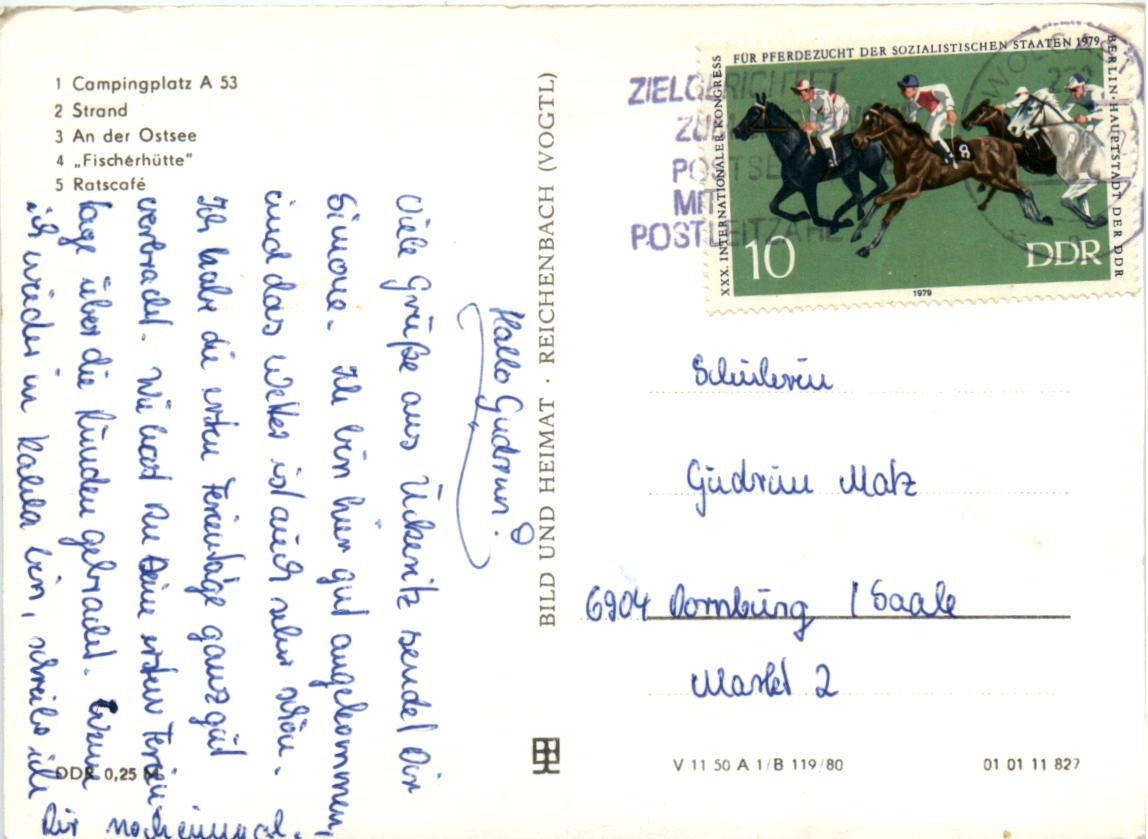 1 Campingplatz A 53
2 Strand
3 An der Ostsee
4 „Fischerhütte“
5 Ratscafé
Hallo Gudrun!
Viele Grüße aus Ückeritz sendet Dir
Simone. Ich bin hier gut angekommen,
und das Wetter ist auch sehr schön.
Ich habe die ersten Ferientage ganz gut
verbracht. Wie hast Du Deine ersten Ferien-
tage über die Runden gebracht. Wenn
ich wieder in Kahla bin, schreibe ich
Dir nocheinmal.
DDR 0,25 M
BILD UND HEIMAT · REICHENBACH (VOGTL)
ZIELGERICHTET
POSTSE
MIT
POSTLEITZAHL
WOLGAST
XXX. INTERNATIONALER KONGRESS
FÜR PFERDEZUCHT DER SOZIALISTISCHEN STAATEN 1979
BERLIN·HAUPTSTADT DER DDR
8
10
DDR
1979
Schülerin
Gudrun Matz
6904 Dornburg / Saale
Markt 2
V 11 50 A 1/B 119/80
01 01 11 827